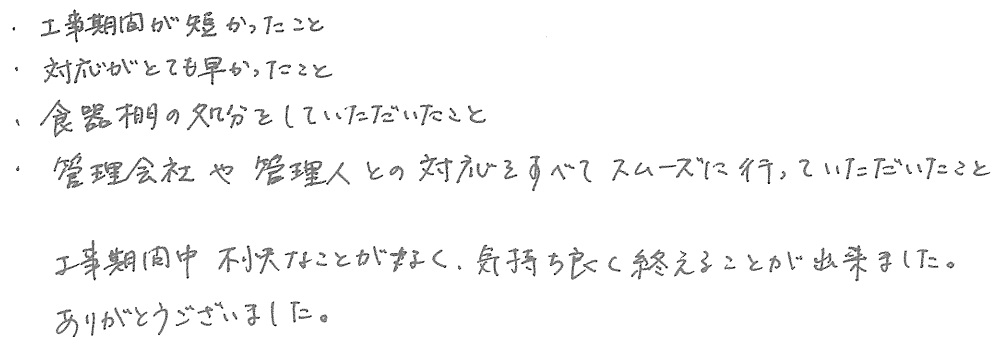 ・ 工事期間が短かったこと
・ 対応がとても早かったこと
・ 食器棚の処分をしていただいたこと
・ 管理会社や管理人との対応をすべてスムーズに行っていただいたこと
工事期間中不快なことがなく、気持ち良く終えることが出来ました。
ありがとうございました。